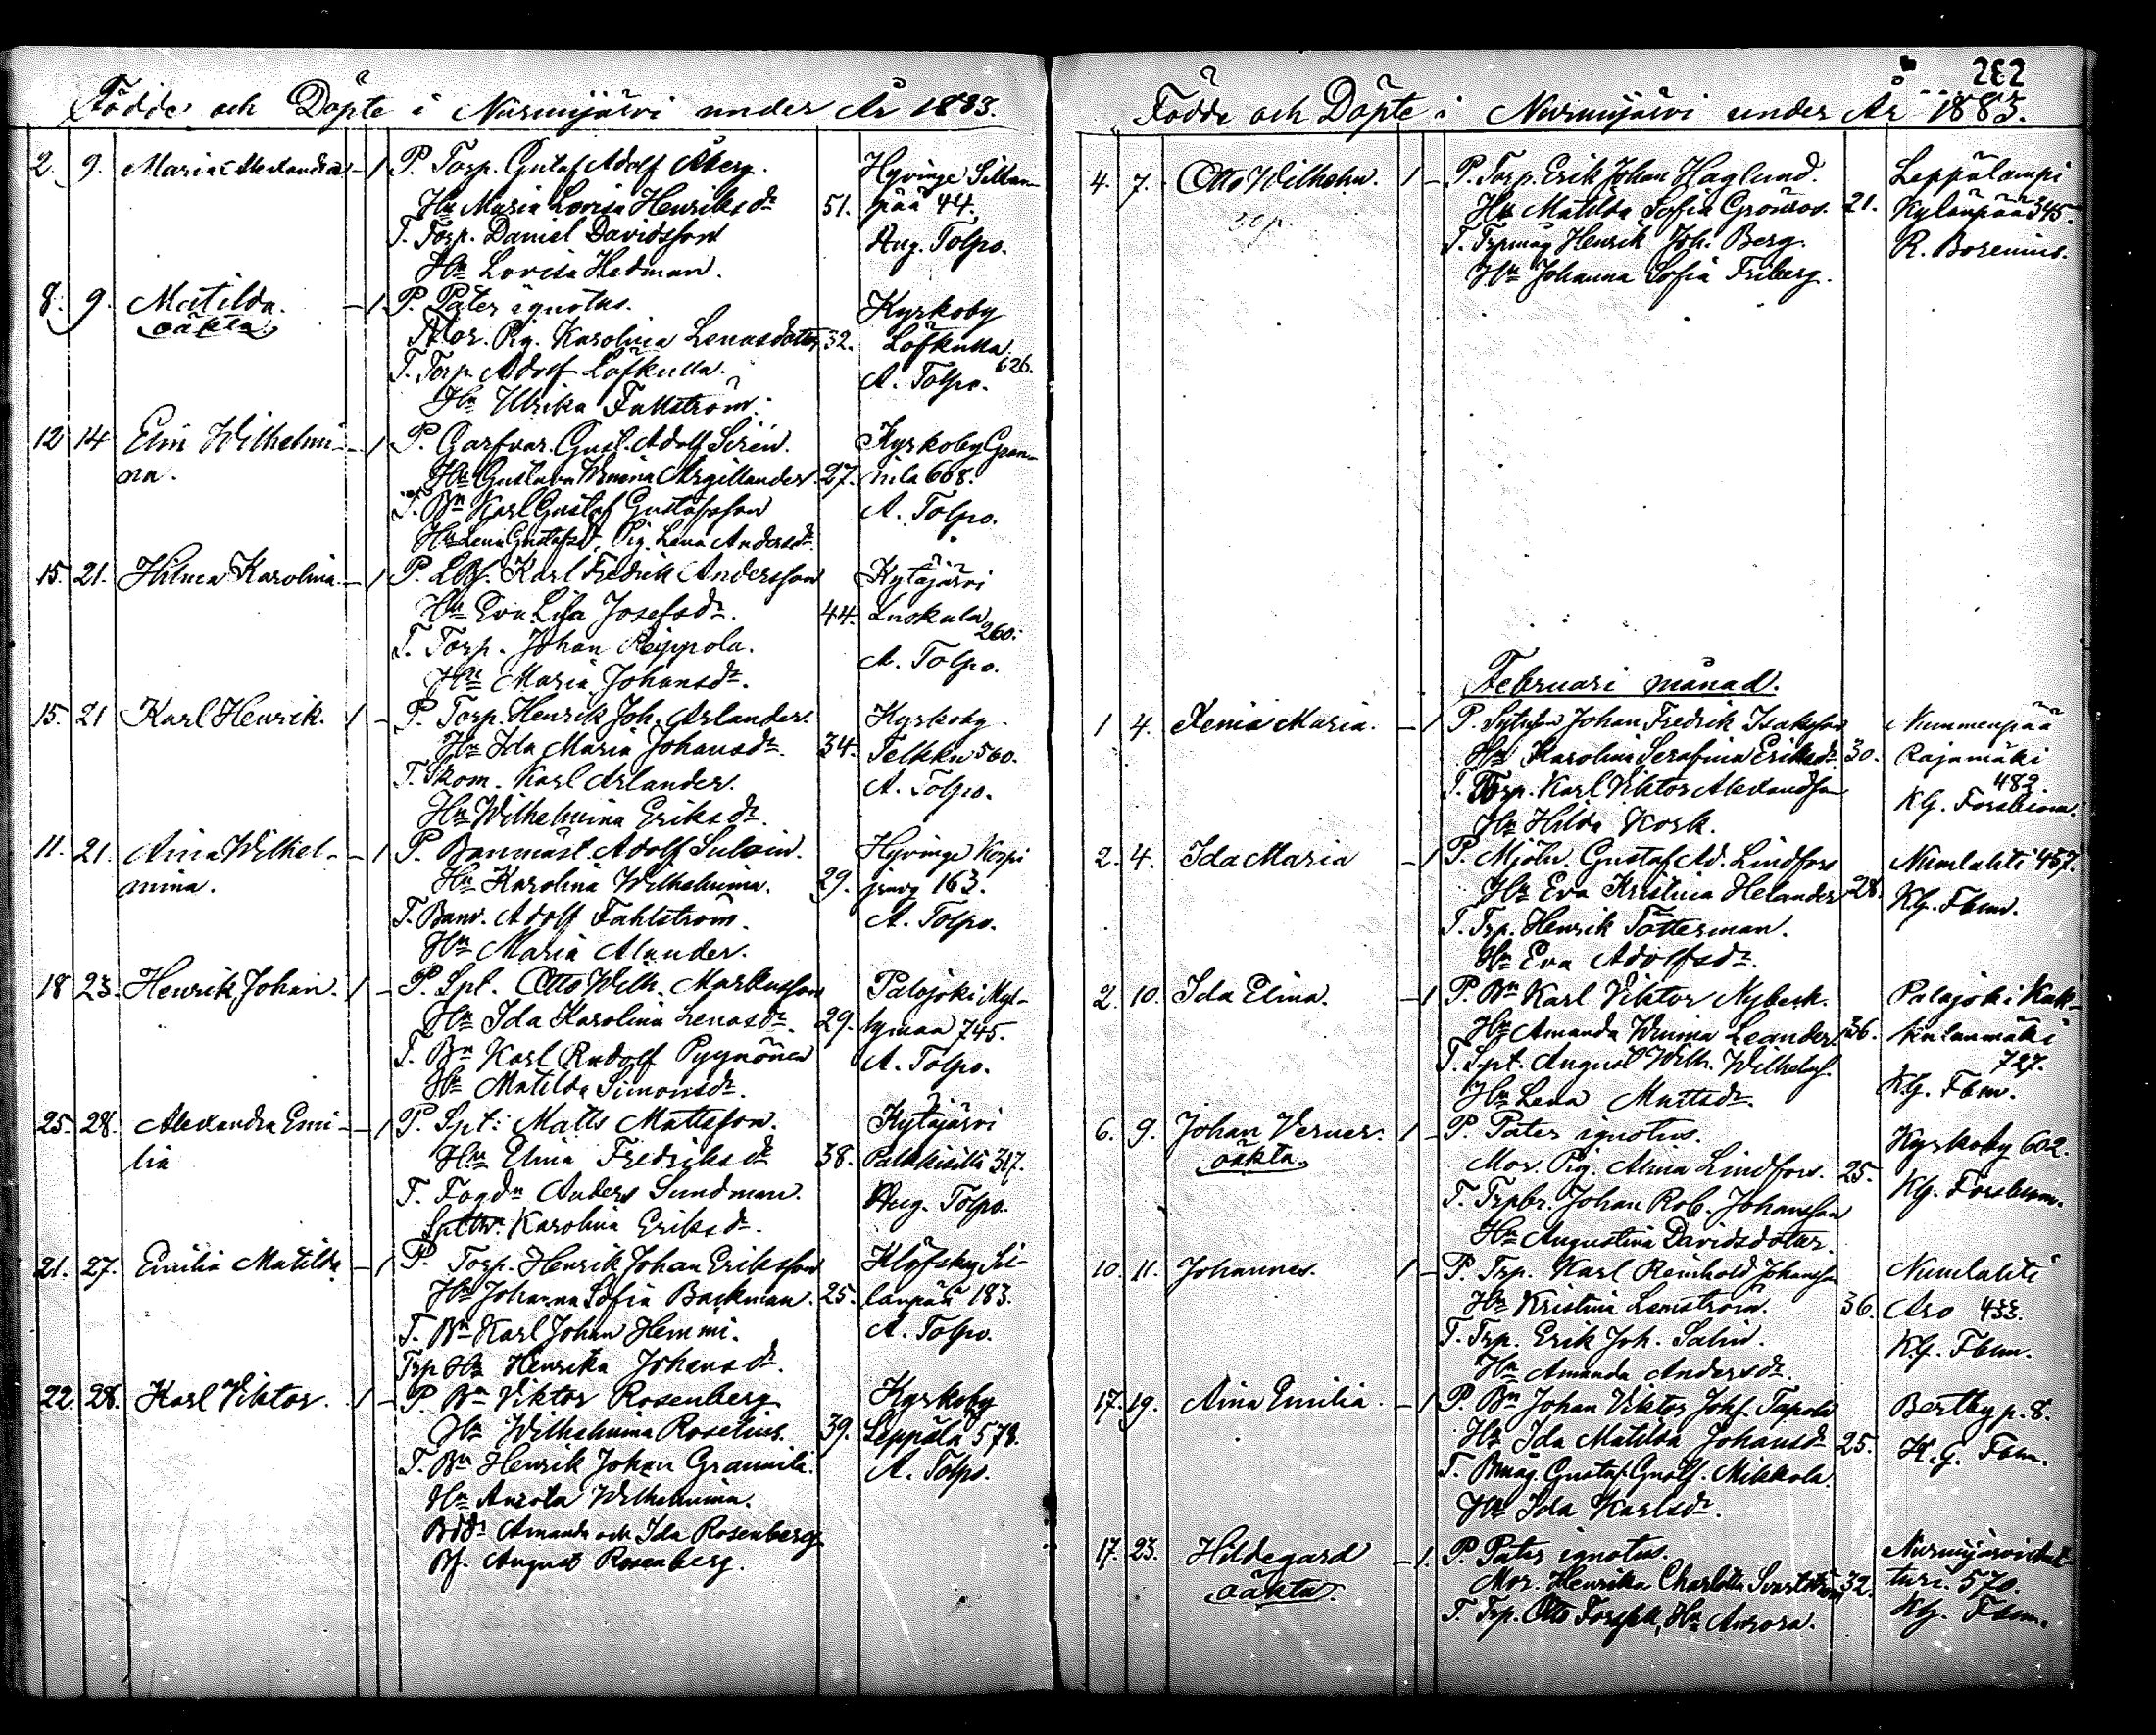 Födde och Döpte i Nurmijärvi under År 1883.
2. 9. Maria Alexandra - 1 P. Torp. Gustaf Adolf Åberg. Hyvinge Sillan-
Hu Maria Lovisa Henriksdr 51. pää 44.
T. Torp. Daniel Davidsson Aug. Tolpo.
Hu Lovisa Hedman.
8. 9. Matilda. - 1 P. Pater ignotus. Kyrkoby
oäkta Mor. Pig. Karolina Lenasdotter 32. Löfkulla 626.
T. Torp. Adolf Löfkulla. A. Tolpo.
Hu Ulrika Fallström.
12 14 Elin Wilhelmi- - 1 P. Garfvar. Gust. Adolf Sirén. Kyrkoby Gran-
na. Hu Gustava Wmina Argillander. 27. nila 608.
T. Bn Karl Gustaf Gustafsson A. Tolpo.
Hu Lena Gustafsd. Pig. Lena Andersdr
15. 21. Hilma Karolina. - 1 P. Karl Fredrik Andersson Kytäjärvi
Hu Eva Lisa Josefsdr. 44. Luskala 260.
T. Torp. Johan Reippola. A. Tolpo.
Hu Maria Johansdr.
15. 21 Karl Henrik. 1 - P. Torp. Henrik Joh. Arlander. Kyrkoby
Hu Ida Maria Johansdr. 34. Telkku 560.
T. Skom. Karl Arlander. A. Tolpo.
Hu Wilhelmina Eriksdr.
11. 21. Aina Wilhel- - 1 P. Banmäst. Adolf Hyvinge Korpi
mina. Hu Karolina Wilhelmina. 29. 163.
T. Banv. Adolf Fahlström. A. Tolpo.
Hu Maria Alander.
18 23. Henrik Johan. 1 - P. Spt. Otto Wilh. Markusson Palojoki Myl-
Hu Ida Karolina Lenasdr. 29. lymaa 745.
T. Bn Karl Rudolf Pyynönen A. Tolpo.
Hu Matilda Simonsdr.
25. 28. Alexandra Emi- - 1 P. Spt. Matts Mattsson. Kytäjärvi
lia Hu Elina Fredriksdr 38. 317.
T. Fogdn Anders Sundman. Aug. Tolpo.
Karolina Eriksdr.
21. 27. Emilia Matilda - 1 P. Torp. Henrik Johan Eriksson Klöfskog Sil-
Hu Johanna Sofia Backman. 25. lanpää 183.
T. Bn Karl Johan Hemmi. A. Tolpo.
Trp Hu Henrika Johansdr.
22. 28. Karl Viktor. 1 - P. Bn Viktor Rosenberg Kyrkoby
Hu Wilhelmina Roselius. 39. Leppälä 578.
T. Bn Henrik Johan Grannila. A. Tolpo.
Hu Wilhelmina.
Bddr Amanda och Ida Rosenberg
Bs. August Rosenberg.
282
Födde och Döpte i Nurmijärvi under År 1883.
4. 7. Otto Wilhelm. 1 - P. Torp. Erik Johan Haglund. Leppälampi
Hu Matilda Sofia Grönroos. 21. Kylänpää 345.
T. Trpmåg Henrik Joh. Berg. R. Borenius.
Hu Johanna Sofia Friberg.
Februari månad.
1 4. Xenia Maria. - 1 P. Johan Fredrik Isaksson Nummenpää
Hu Karolina Serafina Eriksdr. 30. Rajamäki
T. Torp. Karl Viktor Alexandsson 482.
Hu Hilda Kork. Kg. Forsblom.
2. 4. Ida Maria - 1 P. Mjöln. Gustaf Ad. Lindfors Numlahti 457.
Hu Eva Kristina Helander 28. Kg. Fbm.
T. Trp. Henrik Tötterman.
Hu Eva Adolfsdr.
2. 10. Ida Elina. - 1 P. Bn Karl Viktor Nybeck. Palojoki Kuk-
Hu Amanda Wmina Leander. 36. kulanmäki
T. Spt. August Wilh. Wilhelmss. 727.
Hu Lena Mattsdr. Kg. Fbm.
6. 9. Johan Verner. 1 - P. Pater ignotus. Kyrkoby 602.
oäkta. Mor. Pig. Alma Lindfors. 25. Kg. Forsblom.
T. Trpbr. Johan Rob. Johansson
Hu Augustina Davidsdotter.
10. 11. Johannes. 1 - P. Trp. Karl Reinhold Johansson Numlahti
Hu Kristina Lemström. 36. Aro 433.
T. Trp. Erik Joh. Salin. Kg. Fbm.
Hu Amanda Andersdr.
17. 19. Aina Emilia. - 1 P. Bn Johan Viktor Johs. Tapola Bertby p. 8.
Hu Ida Matilda Johansdr 25. K. G. Fbm.
T. Bmåg Gustaf Gustfs. Mikkola.
Hu Ida Karlsdr.
17. 23. Hildegard - 1. P. Pater ignotus. Nurmijärvi
oäkta. Mor. Henrika Charlotta Svartström 32. 570.
T. Trp. Otto Forsbäck, Hu Aurora. Kg. Fbm.